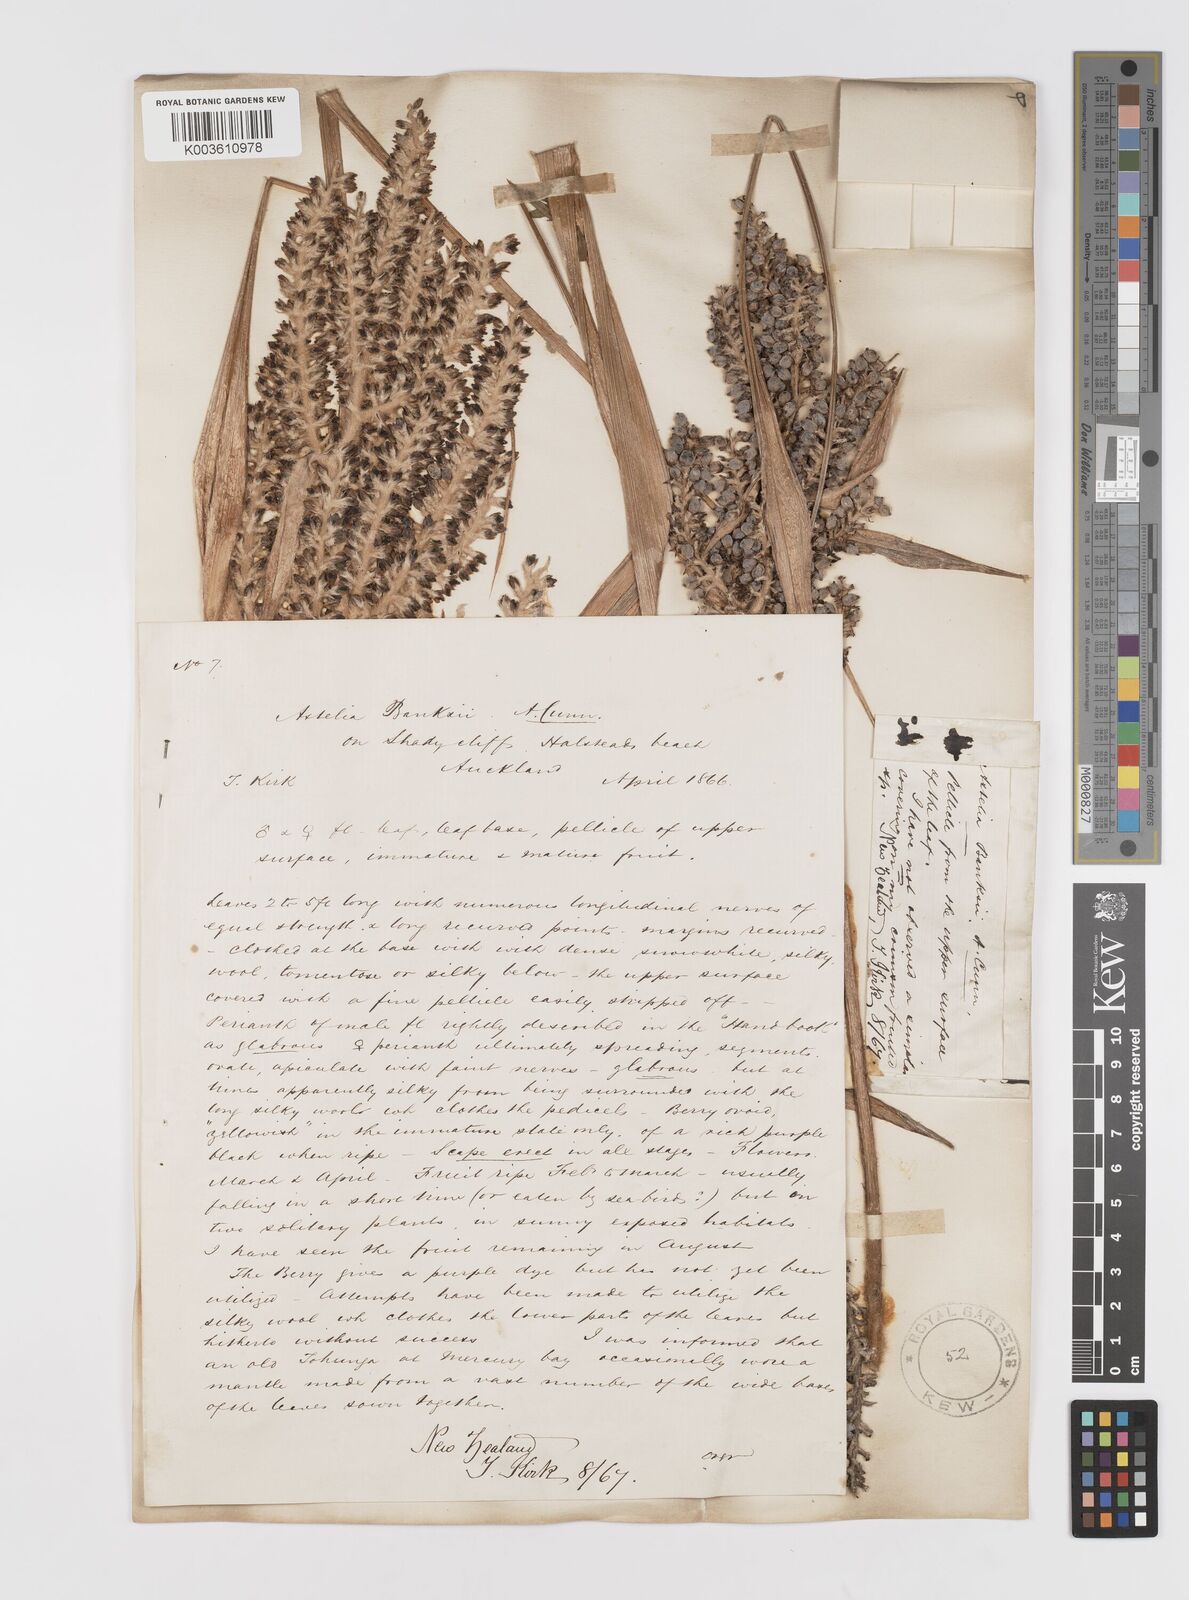 ROYAL BOTANIC GARDENS KEW
K003610978
8
No 7.
Astelia Banksii. A. Cunn.
on Shady cliffs Halsteads beach
Auckland
T. Kirk April 1866.
♂ & ♀ fl - leaf, leaf base, pellicle of upper
surface, immature & mature fruit.
Leaves 2 to 5ft long with numerous longitudinal nerves of
equal strength & long recurved points - margins recurved -
- clothed at the base with with dense, snowwhite, silky,
wool, tomentose or silky below - the upper surface
covered with a fine pellicle easily stripped off - -
Perianth of male fl rightly described in the "Handbook"
as glabrous ♀ perianth ultimately spreading, segments.
ovate, apiculate with faint nerves - glabrous but at
times apparently silky from being surrounded with the
long silky wool wh clothes the pedicels - Berry ovoid,
"yellowish" in the immature state only. of a rich purple
black when ripe - Scape erect in all stages - Flowers.
March & April - Fruit ripe Feb to March - usually
falling in a short time (or eaten by sea birds?) but on
two solitary plants, in sunny exposed habitats.
I have seen the fruit remaining in August
The Berry gives a purple dye but has not yet been
utilized - Attempts have been made to utilize the
silky wool wh clothes the lower parts of the leaves but
hitherto without success I was informed that
an old Tohunga at Mercury bay occasionally wore a
mantle made from a vast number of the wide bases
of the leaves sown together.
New Zealand
T. Kirk 8/67.
over
Astelia Banksii. A. Cunn.
Pellicle from the upper surface
of the leaf.
I have not observed a similar
covering on my common
sp. New Zealand, T. Kirk 8/67.
ROYAL GARDENS
52
KEW
inches
DSG Illuminant, 2 degree observer
Density
Don Williams
M000827
Kew
Royal Botanic Gardens
copyright reserved
0 1 2 3 4 5 6 7 8 9 10
cm